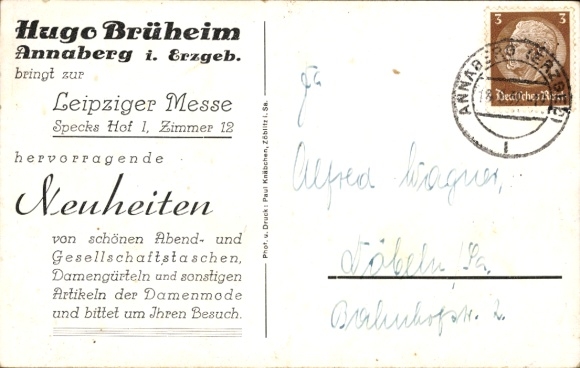 Hugo Brüheim
Annaberg i. Erzgeb.
bringt zur
Leipziger Messe
Specks Hof I, Zimmer 12
hervorragende
Neuheiten
von schönen Abend- und
Gesellschaftstaschen,
Damengürteln und sonstigen
Artikeln der Damenmode
und bittet um Ihren Besuch.
Phot. u. Druck: Paul Knäbchen, Zöblitz i. Sa.
3 3
Deutsches Reich
ANNABERG (ERZGEB)
18
1
Fa
Alfred Wagner,
Döbeln/Sa.
Bahnhofstr. 2.